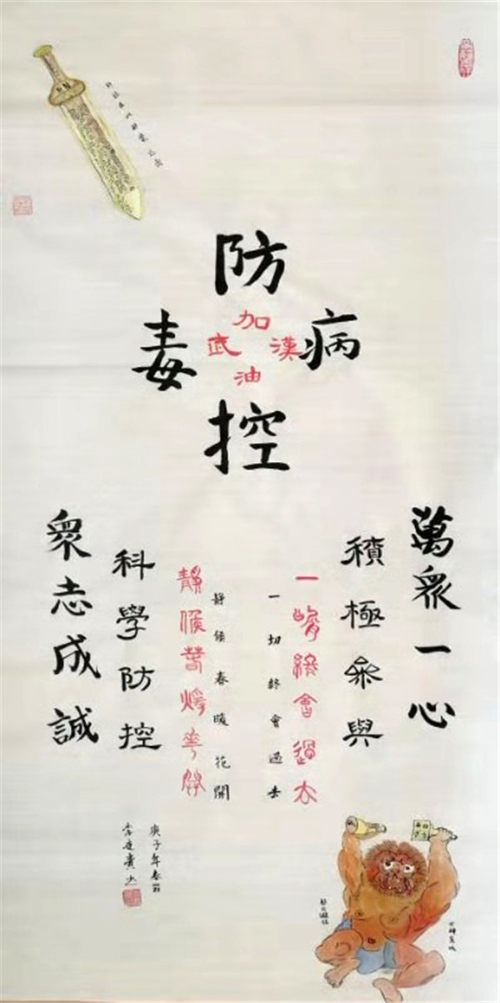 防控
病毒
武漢
加油
萬衆一心
積極參與
一切終會過去
一切終會過去
靜候春暖花開
靜候春暖花開
科學防控
衆志成誠
庚子年春節